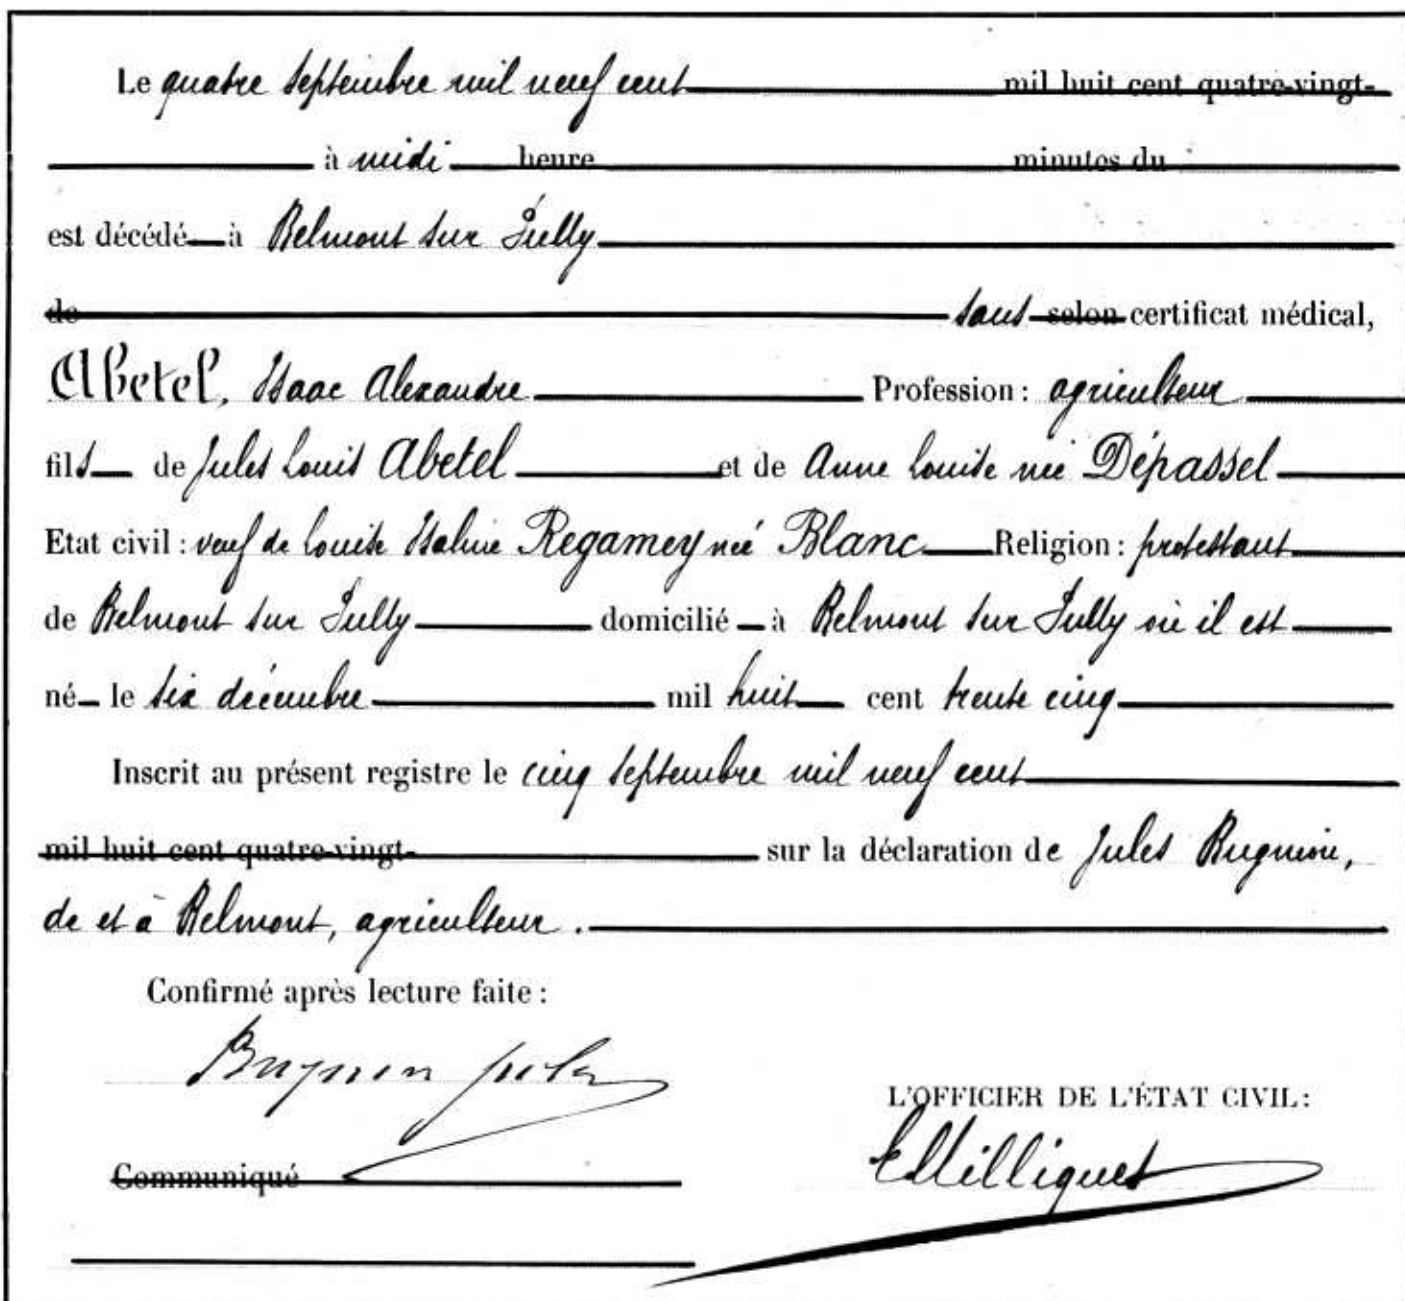 Le quatre septembre mil neuf cent mil huit cent quatre-vingt-
à midi heure minutes du
est décédé à Belmont sur Lully
de sans selon certificat médical,
Abetel, Isaac Alexandre Profession : agriculteur
fils de Jules Louis Abetel et de Anne Louise née Dépassel
Etat civil : veuf de Louise Isaline Regamey née Blanc Religion : protestant
de Belmont sur Lully domicilié à Belmont sur Lully où il est
né le six décembre mil huit cent trente cinq
Inscrit au présent registre le cinq septembre mil neuf cent
mil huit cent quatre-vingt- sur la déclaration de Jules Bugnion,
de et à Belmont, agriculteur.
Confirmé après lecture faite :
Bugnion jules
L'OFFICIER DE L'ÉTAT CIVIL :
EMilliquet
Communiqué